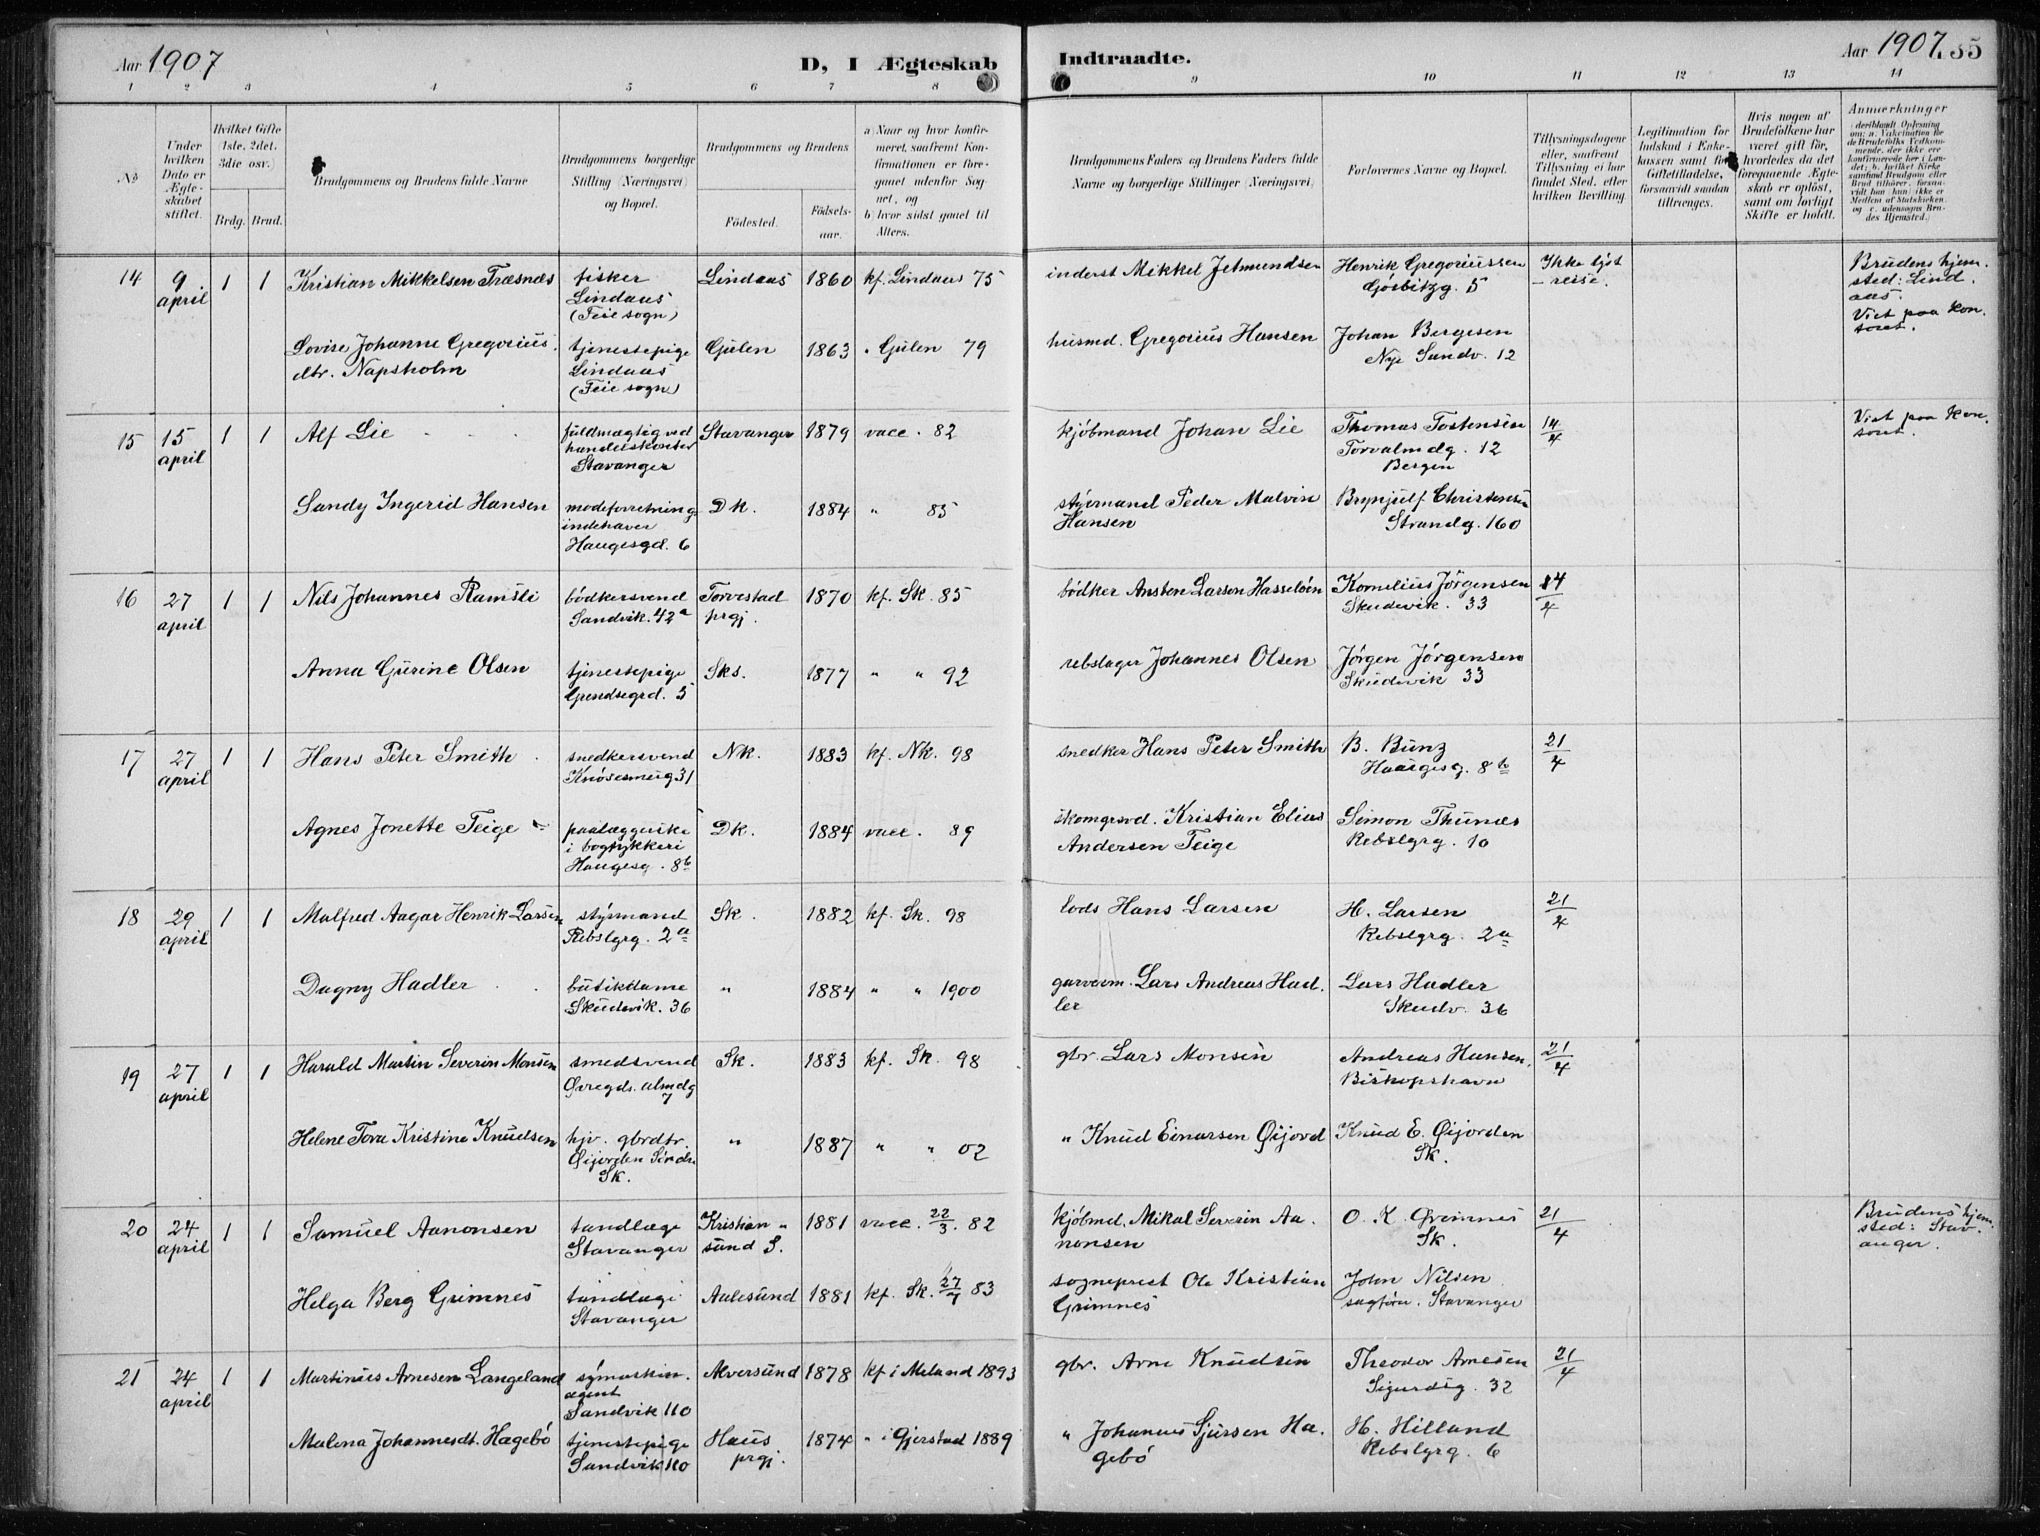 Aar 1907
D, I Ægteskab
Indtraadte.
Aar 1907.
35
1 2 3 4 5 6 7 8 9 10 11 12 13 14
No
Under hvilken Dato er Ægteskabet stiftet.
Hvilket Gifte 1ste, 2det, 3die osv.)
Brdg. Brud.
Brudgommens og Brudens fulde Navne
Brudgommens borgerlige Stilling (Næringsvei) og Bopæl.
Brudgommens og Brudens
Fødested.
Fødselsaar.
a) Naar og hvor konfirmeret, saafremt Konfirmationen er foregaaet udenfor Sognet, og
b) hvor sidst gaaet til Alters.
Brudgommens Faders og Brudens Faders fulde Navne og borgerlige Stillinger (Næringsvei)
Forlovernes Navne og Bopæl.
Tillysningsdagene eller, saafremt Tillysning ei har fundet Sted, efter hvilken Bevilling.
Legitimation for Indskud i Enkekassen samt for Giftetilladelse, forsaavidt saadan tiltrænges.
Hvis nogen af Brudefolkene har været gift før, hvorledes da det foregaaende Ægteskab er opløst, samt om lovligt Skifte er holdt.
Anmærkninger
14 9 april 1 1 Kristian Mikkelsen Træsnæs
fisker Lindaas (Feie sogn)
Lindaas 1860 kf. Lindaas 75
inderst Mikkel Jetmundsen
Henrik Gregoriussen
5
Ikke lyst - reise.
Brudens hjemsted: Lindaas.
Viet paa kontoret.
Lovise Johanne Gregoriusdtr. Napsholm
tjenestepige Lindaas (Feie sogn)
Gulen 1863 " Gulen 79
husmd. Gregorius Hansen
Johan Bergesen
Nye Sandv. 12
15 15 april 1 1 Alf Lie
fuldmægtig ved handelskontor Stavanger
Stavanger 1879 vacc. 82
kjøbmand Johan Lie
Thomas Tostensen
Torvalmdg. 12
Bergen
14/4
Viet paa kontoret.
Sandy Ingerid Hansen
modeforretningindehaver Haugesgd. 6
Dk. 1884 " 85
styrmand Peder Malvin Hansen
Brynjulf Christensen
Strandg. 160
16 27 april 1 1 Nils Johannes Ramsli
bødkersvend Sandvik. 42a
Torvestad prgj. 1870 kf. Sk. 85
bødker Ansten Larsen Hasseløen
Kornelius Jørgensen
Skudevik. 33
14/4
Anna Gurine Olsen
tjenestepige Grendsegrd. 5
Sks. 1877 " " 92
rebslager Johannes Olsen
Jørgen Jørgensen
Skudevik 33
17 27 april 1 1 Hans Peter Smith
snedkersvend Knøsesmug 31
Nk. 1883 kf. Nk. 98
snedker Hans Peter Smith
B. Bunz
Haugesg. 8b
21/4
Agnes Jonette Teige
paalæggerske i bogtykkeri Haugesg. 8b
Dk. 1884 vacc. 89
skomgrsvd. Kristian Elias Andersen Teige
Simon Thunæs
Rebslgrg. 10
18 29 april 1 1 Malfred Aagar Henrik Larsen
styrmand Rebslgrg. 2a
Sk. 1882 kf. Sk. 98
lods Hans Larsen
H. Larsen
Rebslgrg. 2a
21/4
Dagny Hadler
butikdame Skudevik. 36
" 1884 " " 1900
garverm. Lars Andreas Hadler
Lars Hadler
Skudv. 36
19 27 april 1 1 Harald Martin Severin Monsen
smedsvend Øvregds. almdg 7
Sk. 1883 kf. Sk. 98
gbr. Lars Monsen
Andreas Hansen,
Biskopshavn
21/4
Helene Tora Kristine Knudsen
hjv. gbrdtr. Øijorden Søndre Sk.
" 1887 " " 02
" Knud Einarsen Øijord
Knud E. Øijorden
Sk.
20 24 april 1 1 Samuel Aanonsen
tandlæge Stavanger
Kristiansund S. 1881 vacc. 22/3. 82
kjøbmd. Mikal Severin Aanonsen
O. K. Grimnes
Sk.
21/4
Brudens hjemsted: Stavanger.
Helga Berg Grimnes
tandlæge Stavanger
Aalesund 1881 kf. Sk. 27/7 83
sogneprest Ole Kristian Grimnes
John Nilsen
sagføre. Stavanger
21 24 april 1 1 Martinus Arnesen Langeland
symaskinagent Sandvik 110
Alversund 1878 kf i Meland 1893
gbr. Arne Knudsen
Theodor Arnesen
Sigurdsg. 32
21/4
Malena Johannesdt. Hagebø
tjenestepige Sandvik 110
Haus prgj. 1874 " i Gjerstad 1889
" Johannes Sjursen Hagebø
H. Hilland
Rebslgrg. 6